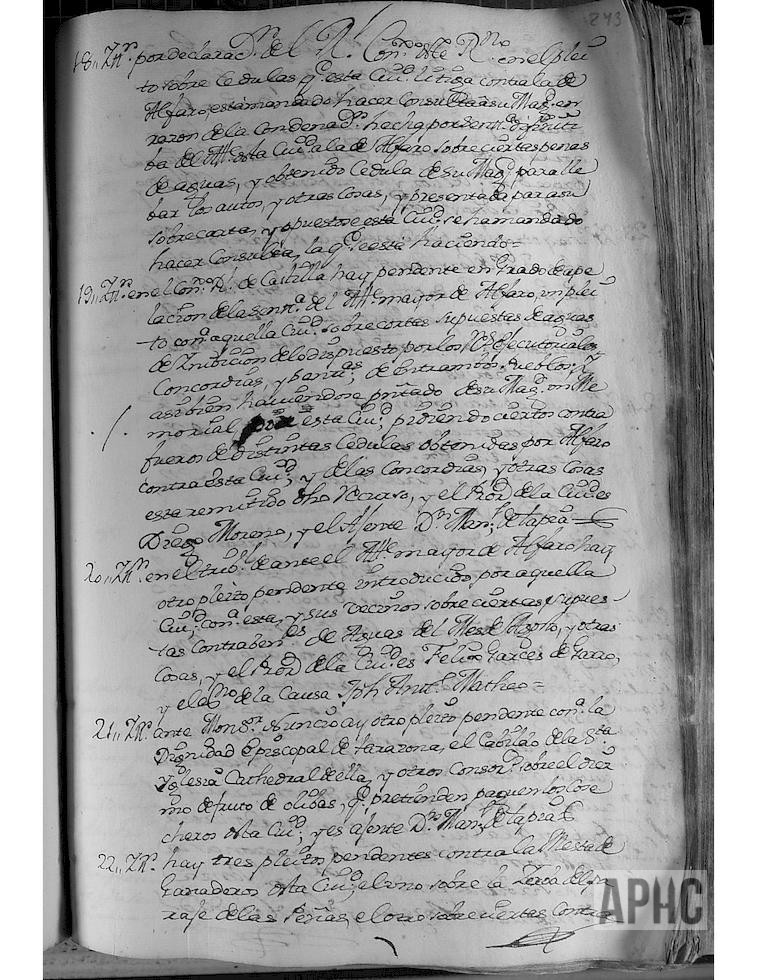 243
18,, Ittn. por declaraz.n del R.l Con.º de este R.no en el plei
to sobre Cedulas q.e esta Ciu.d litiga contra la de
Alfaro, esta mandado hacer Consulta a su Mag.d en
razon de la Condenaz.n hecha por sent.a difiniti
ba del Alld. esta Ciu.d a la de Alfaro sobre ciertas penas
de aguas, y obtenido Cedula de su Mag.d para lle
bar los autos, y otras Cosas, y presentada para su
sobrecarta, y opuestose esta Ciu.d se ha mandado
hacer Consulta, la q.e se está haciendo =
19,, Ittn. en el Con.º R.l de Castilla hay pendente en grado de ape
lacion de la sent.a del Alld. mayor de Alfaro, un plei
to con aquella Ciu.d sobre cortes supuestas de aguas
de Inibicion de lo dispuesto por los
Concordias, y de entrambos Pueblos, Y
asi bien haviendose pntado de su Mag.d un Me
morial por esta Ciu.d pidiendo ciertos contra
fueros de distintas Cedulas obtenidas por Alfaro
contra esta Ciu.d, y de las Concordias, y otras Cosas
esta remitido dho recurso, y el Pror. de la Ciu.d es
Diego Moreno, y el Ajente D.n Man.l de Lapra
20,, Ittn. en el trib.l de ante el Alld. mayor de Alfaro hay
otro pleito pendente introducido por aquella
Ciu.d con esta, y sus vecinos sobre ciertas supues-
tas Contraben.es de Aguas del Mes de Agosto, y otras
Cosas, y el Pror. de la Ciu.d es Felix Garces de Garro,
y el es.no de la Causa Jph Ant.º Matheo =
21,, Ittn. ante Mons.r Nuncio ay otro pleito pendente con la
Dignidad Episcopal de tarazona, el Cabildo de la S.ta
Yglesia Cathedral de ella, y otros Consor.s sobre el diez
mo de fruto de olibas, q.e pretenden paguen los Cose
cheros desta Ciu.d, y es ajente D.n Man.l de Lapra
22,, Ittn. hay tres pleitos pendentes contra la Mesta de
Ganaderos desta Ciu.d, el uno sobre la
raje de las Peñas, el otro sobre ciertas Contra
APHC